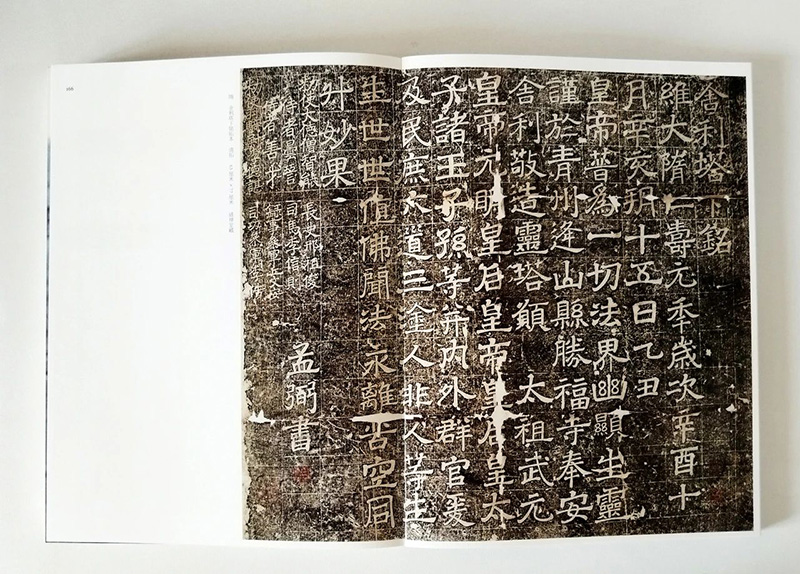 舍利塔下銘
維大隋仁壽元秊歲次辛酉十
月辛亥朔十五日乙丑
皇帝普為一切法界幽顯生靈
謹於青州逢山縣勝福寺奉安
舍利敬造靈塔願 太祖武元
皇帝元明皇后皇帝皇后皇太
子諸王子孫等并內外群官爰
及民庶六道三塗人非人等生
生世世值佛聞法永離苦空同
升妙果
孟弼書
長史邢祖俊
司馬李信則